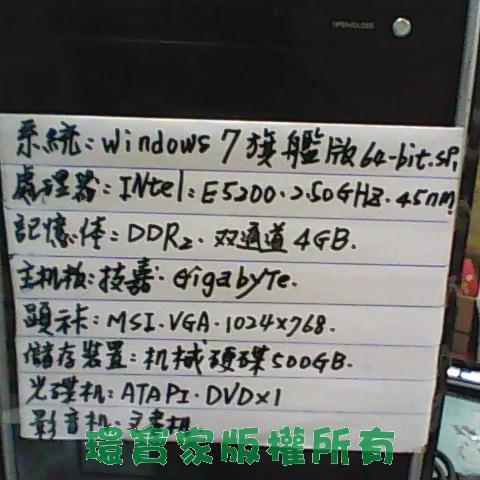 系統：Windows 7 旗艦版 64-bit.SP1
處理器：INtel：E5200．2.50GHZ．45nm
記憶体：DDR2．双通道 4GB．
主机板：技嘉．GigabyTe．
顕示卡：MSI．VGA．1024x768．
儲存裝置：机械硬碟500GB．
光碟机：ATAPI．DVDx1
影音机：
環寶家版權所有